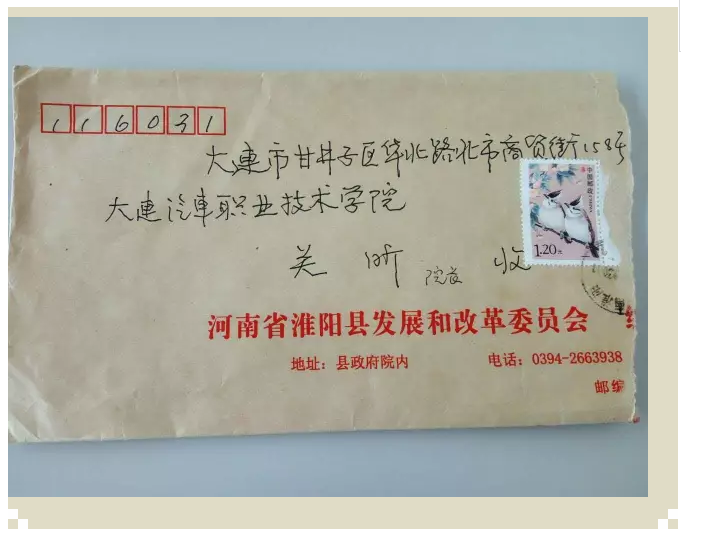 116031
大連市甘井子区华北路北市商贸街158号
大連汽車职业技术学院
关昕 院長 收
中国邮政
1.20元
河南省淮阳县发展和改革委员会
地址：县政府院内 电话：0394-2663938
邮编